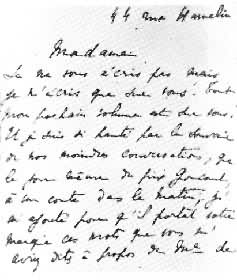 44 rue Hamelin
Madame
Je ne vous écris pas mais
je n'écris que sur vous. Tout
mon prochain volume est sur vous.
Et je suis si hanté par le souvenir
de nos moindres conversations, que
le jour même du prix Goncourt
à un conte dans le Matin, j'
ai ajouté pour qu'il portât votre
marque ces mots que vous m'
aviez dits à propos de Mme de